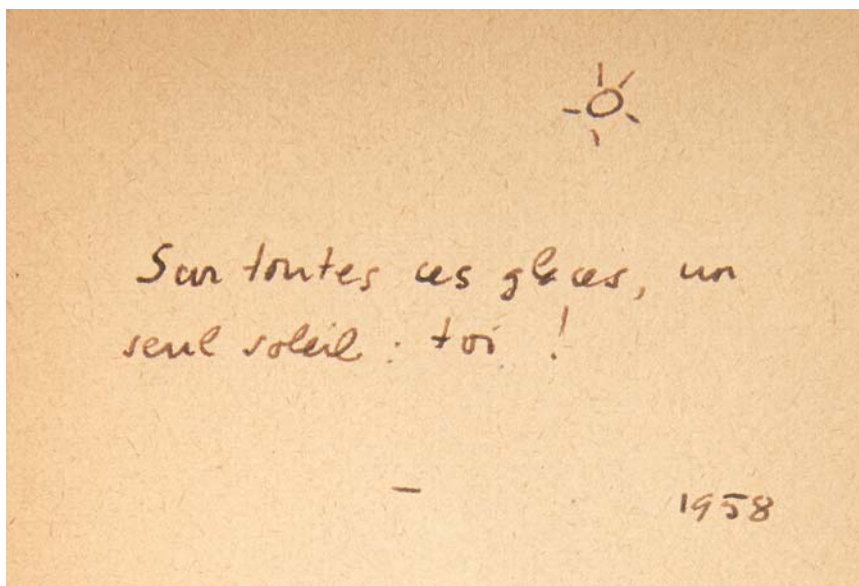 Sur toutes ces glaces, un
seul soleil : toi !
—
1958